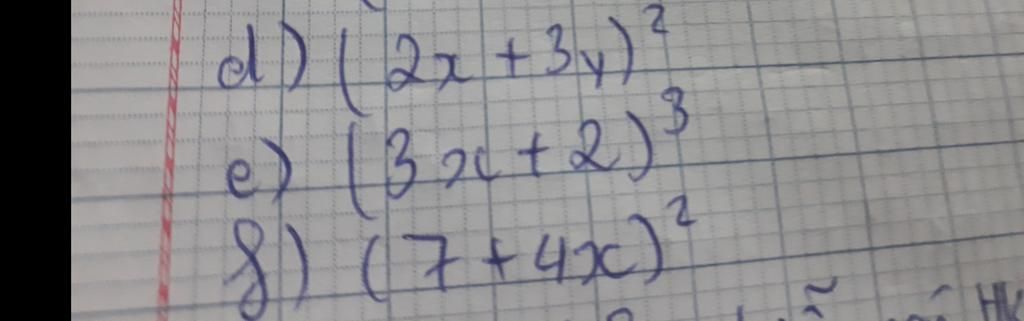 d) (2x + 3y)²
e) (3x + 2)³
f) (7 + 4x)²